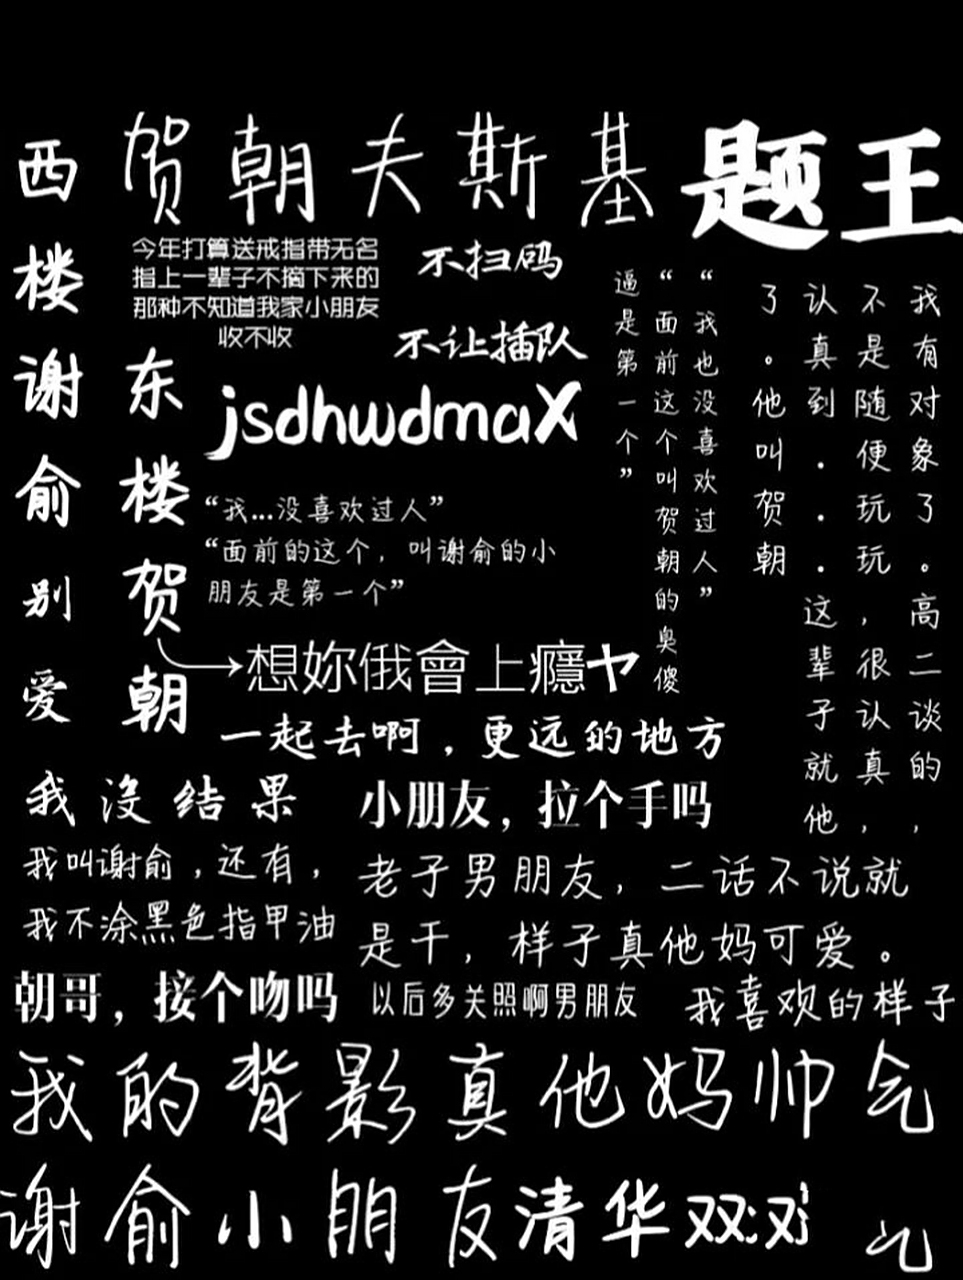 贺朝夫斯基
题王
西楼谢俞
别爱
东楼贺朝
今年打算送戒指带无名
指上一辈子不摘下来的
那种不知道我家小朋友
收不收
不扫码
不让插队
jsdhwdmaX
“我...没喜欢过人”
“面前的这个，叫谢俞的小
朋友是第一个”
“我也没喜欢过人”
“面前这个叫贺朝的奥傻
逼是第一个”
我有对象了。高二谈的，
不是随便玩玩，很认真，
认真到...这辈子就他
了。他叫贺朝
想妳俄會上癮ヤ
一起去啊，更远的地方
我没结果
小朋友，拉个手吗
我叫谢俞，还有，
我不涂黑色指甲油
老子男朋友，二话不说就
是干，样子真他妈可爱。
朝哥，接个吻吗
以后多关照啊男朋友
我喜欢的样子
我的背影真他妈帅气
谢俞小朋友
清华双